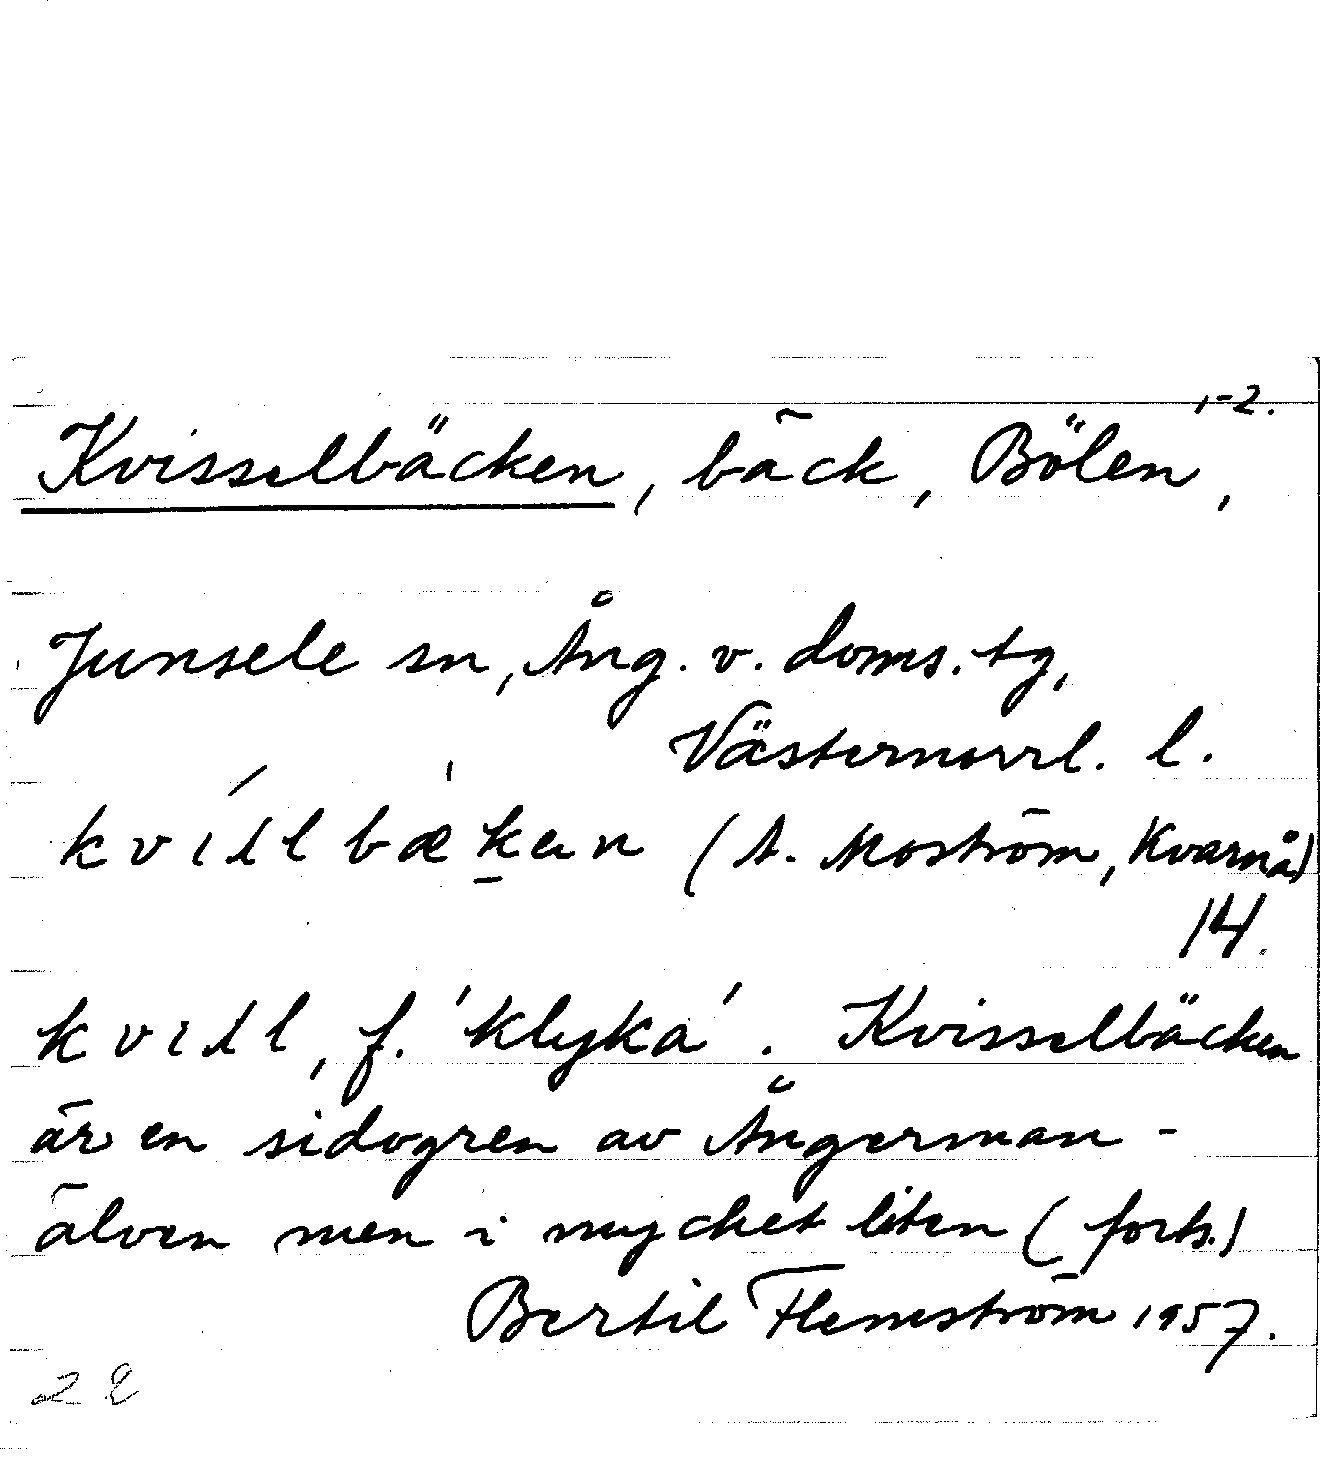 1-2.
Kvisselbäcken, bäck, Bölen,
Junsele sn, Ång. v. doms. tg,
Västernorrl. l.
(A. Moström, Kvarnå)
14.
f. 'klyka'. Kvisselbäcken
är en sidogren av Ångerman-
älven men i mycket liten (forts.)
Bertil Flemström 1957.
22